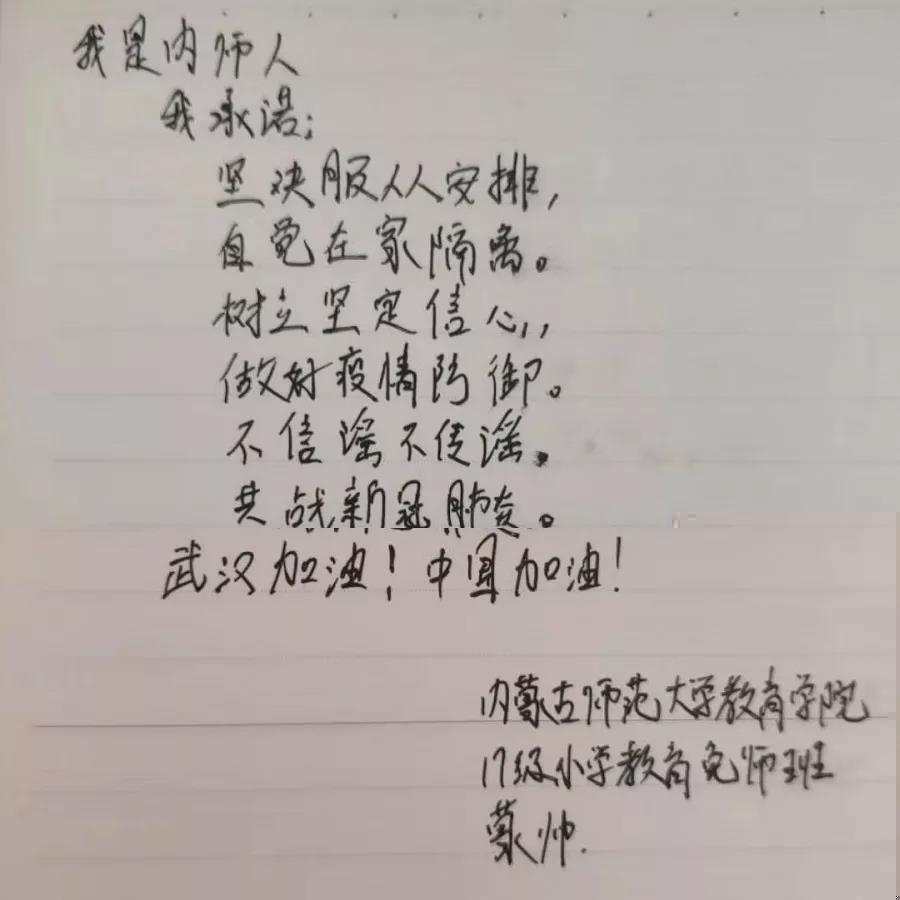 我是内师人
我承诺：
坚决服从安排，
自觉在家隔离。
树立坚定信心，
做好疫情防御。
不信谣不传谣。
共战新冠肺炎。
武汉加油！中国加油！
内蒙古师范大学教育学院
17级小学教育免师班
蒙帅.